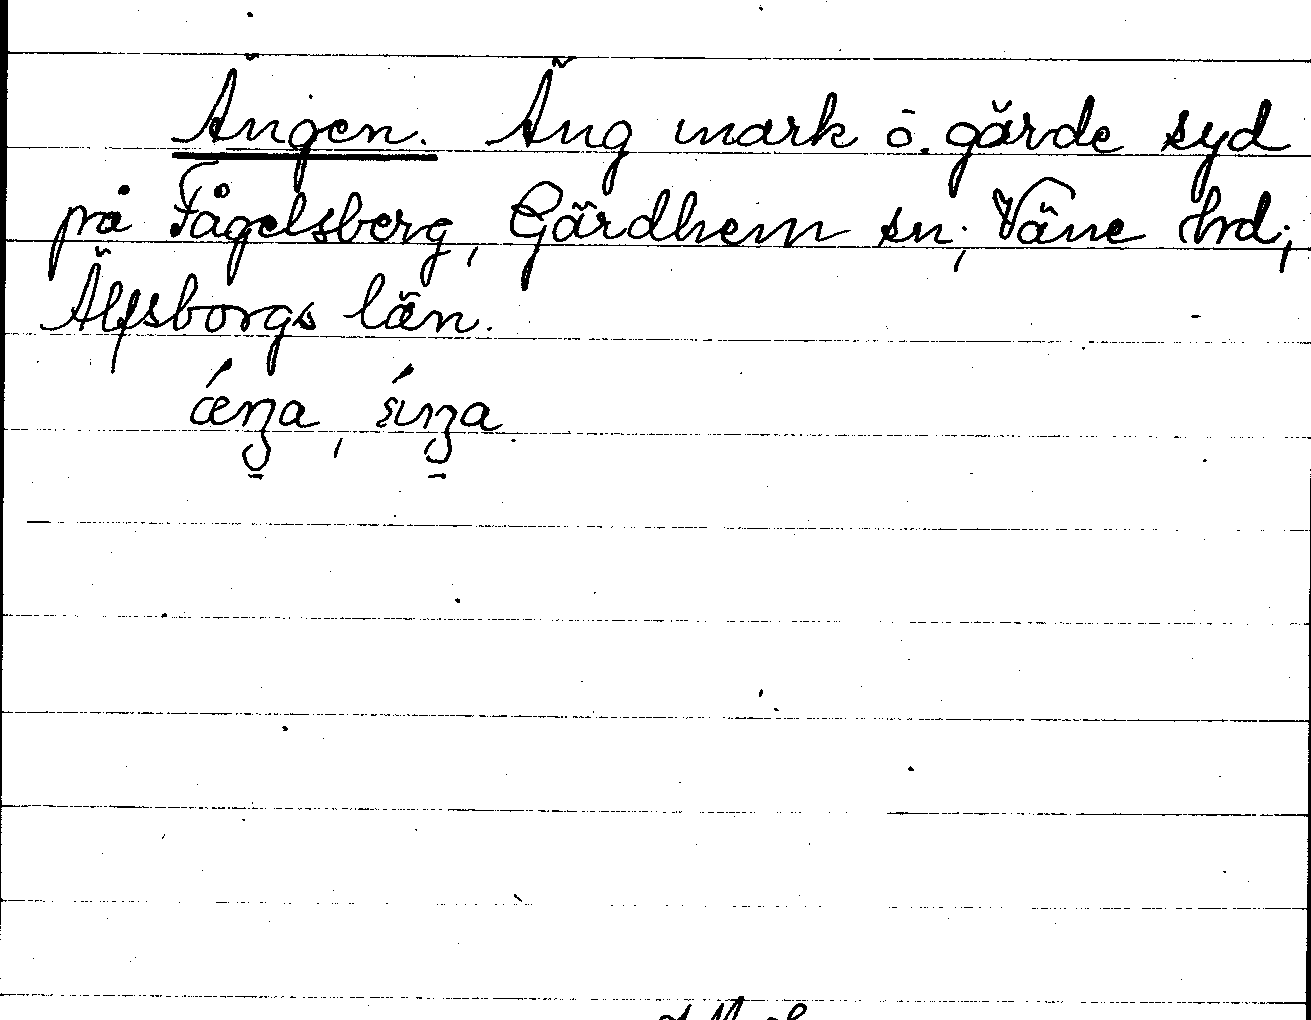 Ängen. Äng mark o. gärde syd
på Fågelsberg, Gärdhem sn; Väne hd;
Älfsborgs län.